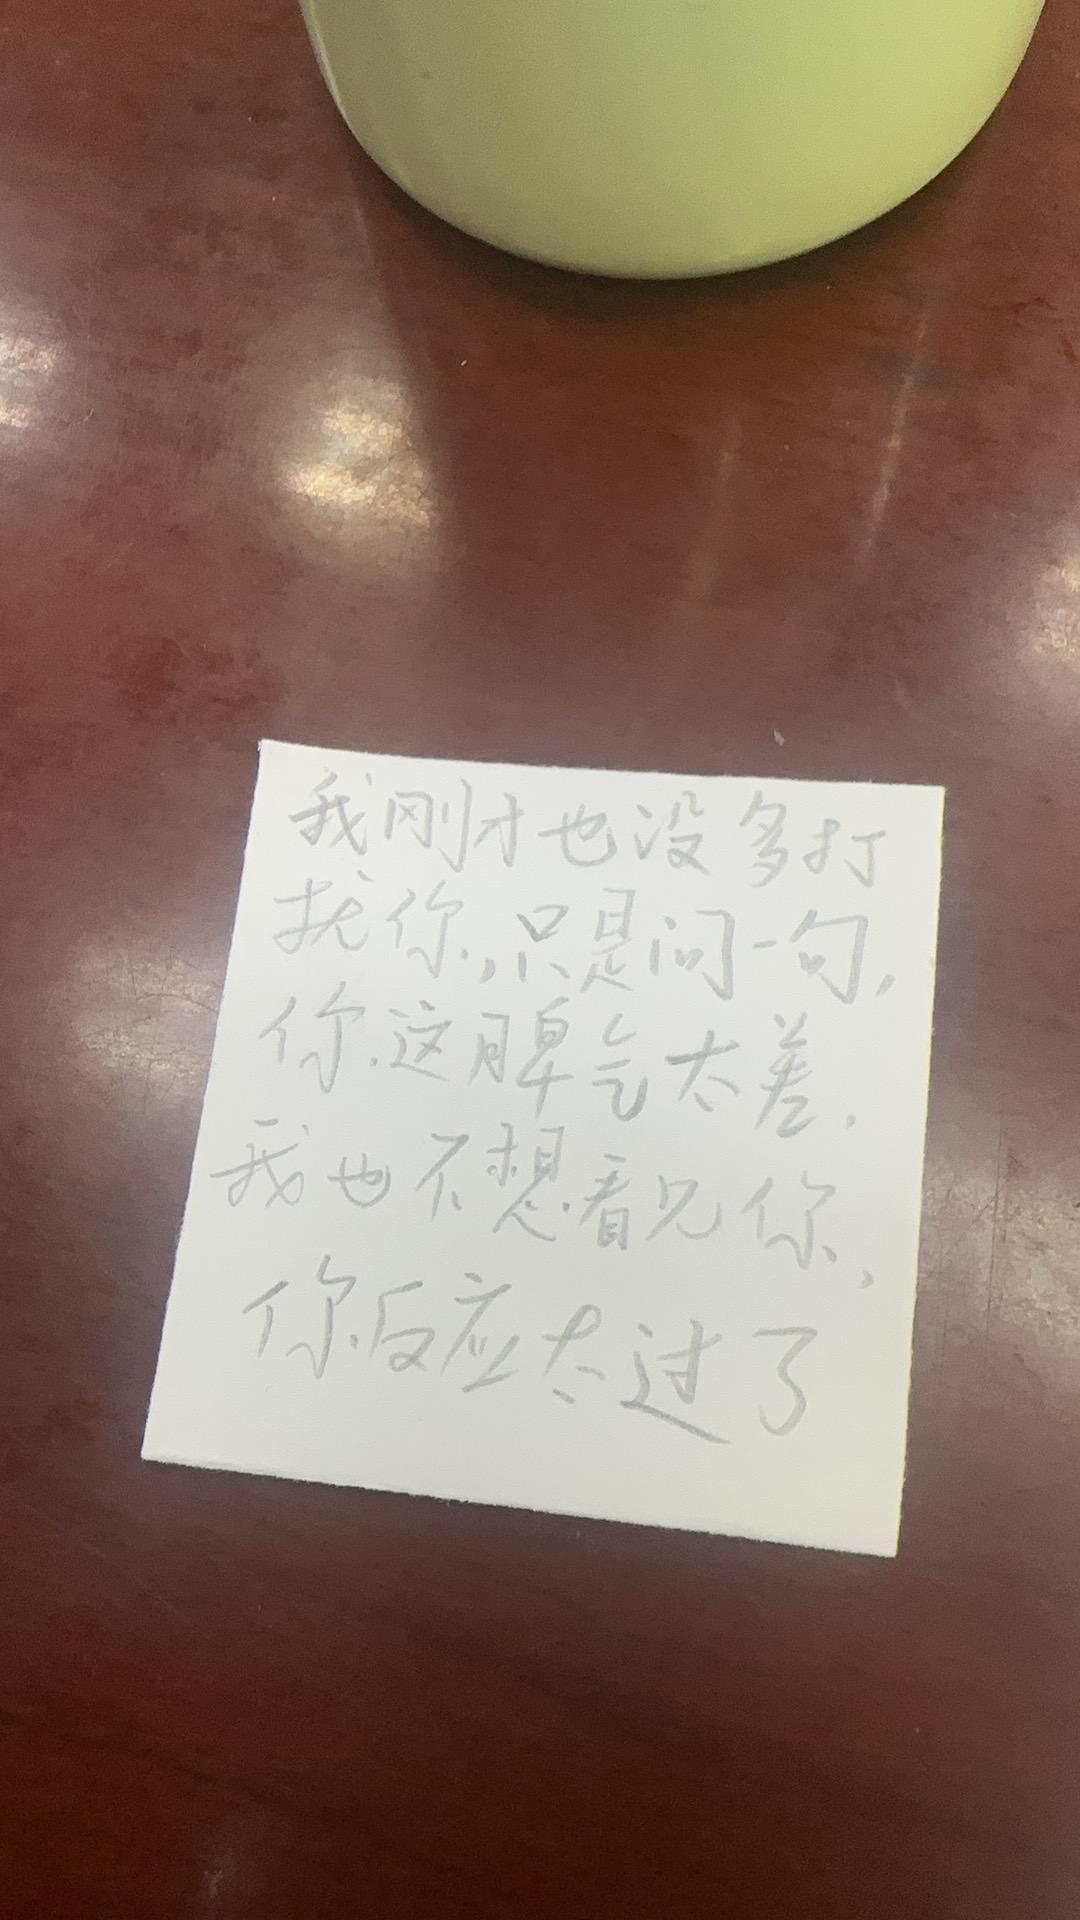 我刚才也没多打
扰你,只是问一句,
你这脾气太差.
我也不想看见你,
你反应太过了